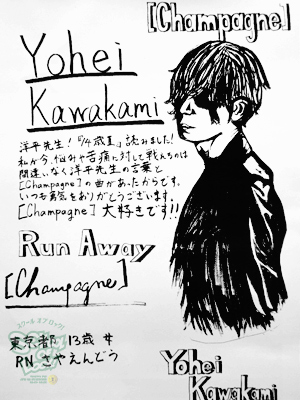 [Champagne]
Yohei
Kawakami
洋平先生!『14歳Ⅱ』読みました!
私が今、悩みや苦痛に対して戦えるのは
間違いなく洋平先生の言葉と
[Champagne]の曲があったからです。
いつも勇気をありがとうございます。
[Champagne]大好きです!!
Run Away
[Champagne]
東京都 13歳 ♀
RN さやえんどう
Yohei
Kawakami